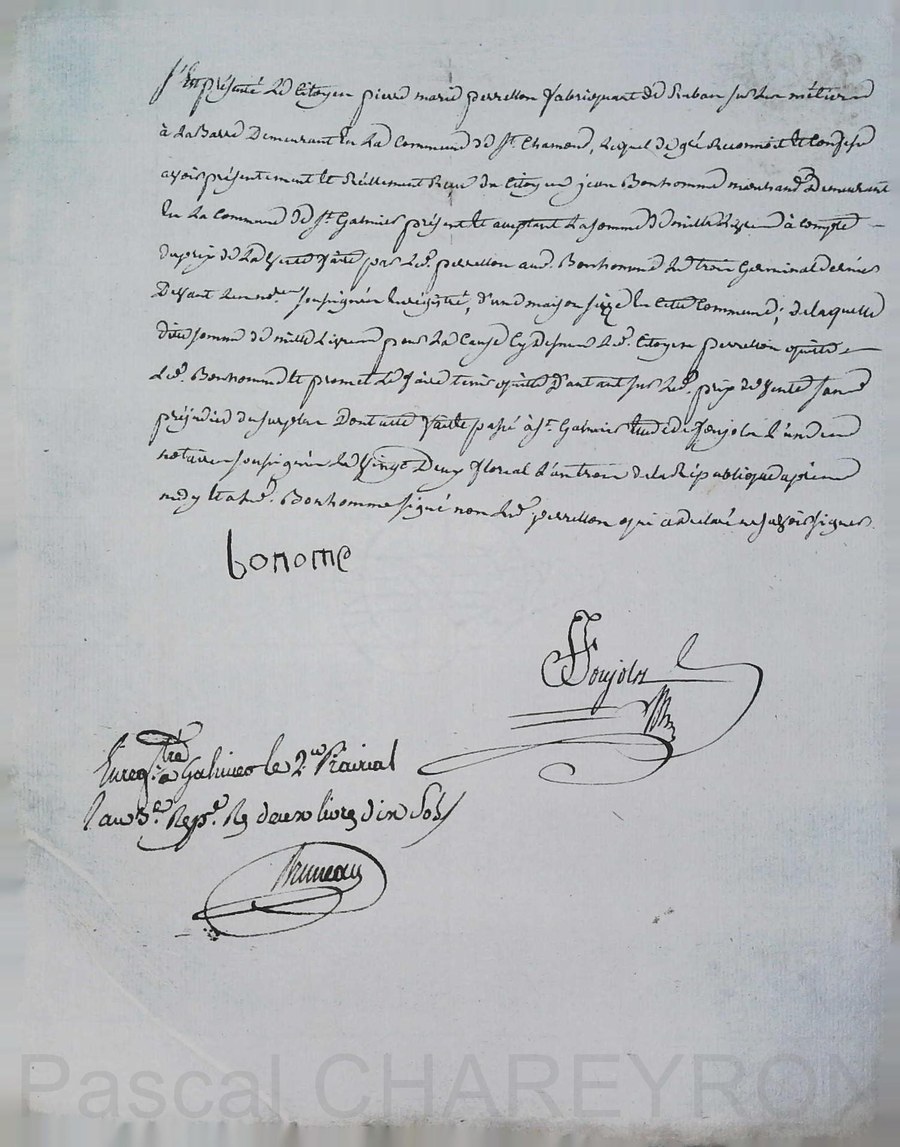 S'est présenté Le Citoyen pierre marie perrellon fabriquant de Ruban sur Les métiers
à La Barre Demeurant En La Commune de St. Chamond, Lequel de gré Reconnoit et Confesse
avoir présentement et Réellement Reçu du Citoyen jean Bonhomme marchand Demeurant
En La Commune de St. Galmier présent et acceptant La somme de mille Livres à compte
du prix de La Vente faite par Led. perrellon aud. Bonhomme Le trois Germinal dernier
Devant Les nores. soussignés Enregistré, d'une maison size En Cette Commune; de laquelle
ditte somme de mille Livres pour La Cause Cy dessus Led. Citoyen perrellon quitte
Led. Bonhomme Et promet Le faire tenir quitte D'autant sur Led. prix de Vente sans
préjudice du surplus Dont acte faite passé à St. Galmier Etude de foujols L'un des
notaires soussignés Le Vingt Deux floreal L'an trois de la République après
midy Et a Led. Bonhomme signé non Led. perrellon qui a declaré ne savoir signer
bonome
foujols
Enregtré. à Galmier le 2 Prairial
l'an 3e. Repe. Rs deux livres dix Sols
Bruneau
Pascal CHAREYRON